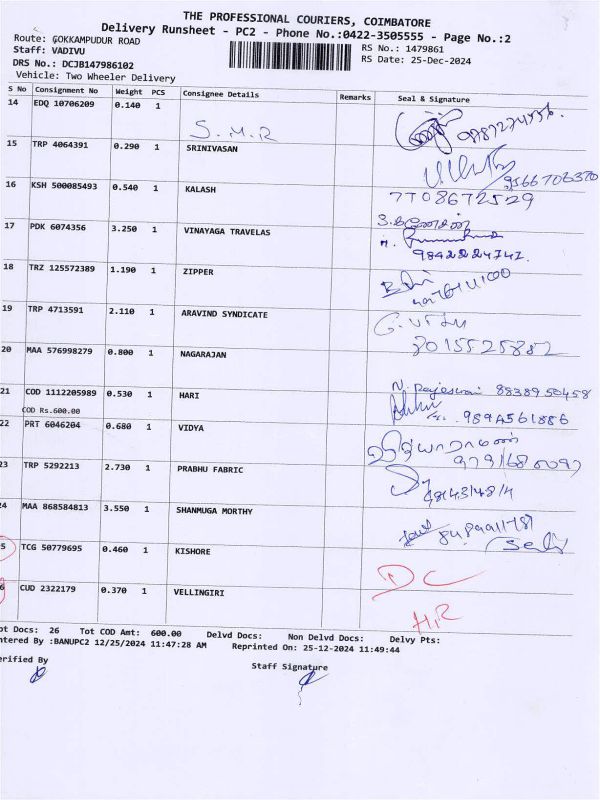 THE PROFESSIONAL COURIERS, COIMBATORE
Delivery Runsheet - PC2 - Phone No.:0422-3505555 - Page No.:2
Route: GOKKAMPUDUR ROAD
RS No.: 1479861
Staff: VADIVU
RS Date: 25-Dec-2024
DRS No.: DCJB147986102
Vehicle: Two Wheeler Delivery
S No Consignment No Weight PCS Consignee Details Remarks Seal & Signature
14 EDQ 10706209 0.140 1
S.M.R
15 TRP 4064391 0.290 1 SRINIVASAN
9566706370
16 KSH 500085493 0.540 1 KALASH
7708672529
17 PDK 6074356 3.250 1 VINAYAGA TRAVELAS
9842224741
18 TRZ 125572389 1.190 1 ZIPPER
19 TRP 4713591 2.110 1 ARAVIND SYNDICATE
8015525882
20 MAA 576998279 0.800 1 NAGARAJAN
N. Rajeswari 8838950458
21 COD 1112205989 0.530 1 HARI
COD Rs.600.00
9894561886
22 PRT 6046204 0.680 1 VIDYA
23 TRP 5292213 2.730 1 PRABHU FABRIC
24 MAA 868584813 3.550 1 SHANMUGA MORTHY
5 TCG 50779695 0.460 1 KISHORE
DC
6 CUD 2322179 0.370 1 VELLINGIRI
H.R
ot Docs: 26 Tot COD Amt: 600.00 Delvd Docs: Non Delvd Docs: Delvy Pts:
ntered By :BANUPC2 12/25/2024 11:47:28 AM Reprinted On: 25-12-2024 11:49:44
erified By
Staff Signature